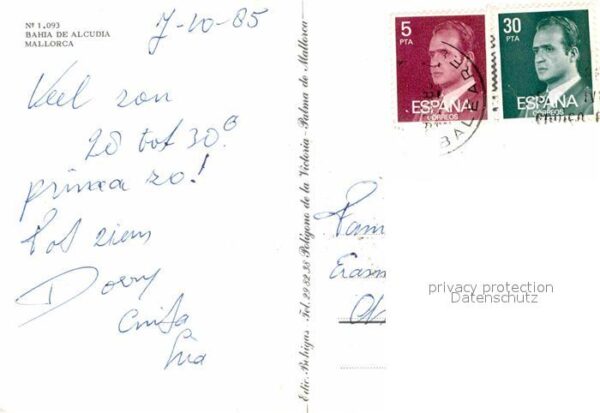 Nº 1.093
BAHIA DE ALCUDIA
MALLORCA
7-10-85
Veel zon
20 tot 30°
prima zo!
Tot ziens
Dorry
Edic. Bohigas - Tel. 29.82.38 Polígono de la Victoria - Palma de Mallorca
5
PTA
ESPAÑA
CORREOS
30
PTA
ESPAÑA
CORREOS
BALEARE
Fam
privacy protection
Datenschutz